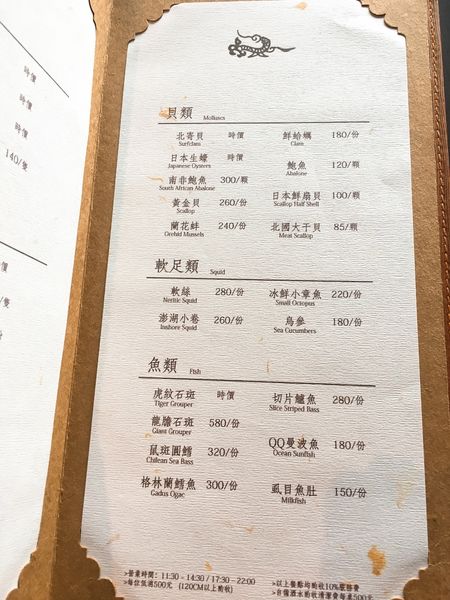 時價
時價
時價
140/隻
貝類 Molluscs
北寄貝 時價
Surfclam
鮮蛤蠣 180/份
Clam
日本生蠔 時價
Japanese Oysters
鮑魚 120/顆
Abalone
南非鮑魚 300/顆
South African Abalone
日本鮮扇貝 100/顆
Scallop Half Shell
黃金貝 260/份
Scallop
北國大干貝 85/顆
Meat Scallop
蘭花蚌 240/份
Orchid Mussels
軟足類 Squid
軟絲 280/份
Neritic Squid
冰鮮小章魚 220/份
Small Octopus
澎湖小卷 260/份
Inshore Squid
烏參 180/份
Sea Cucumbers
魚類 Fish
虎紋石斑 時價
Tiger Grouper
切片鱸魚 280/份
Slice Striped Bass
龍膽石斑 580/份
Giant Grouper
QQ曼波魚 180/份
Ocean Sunfish
鼠斑圓鱈 320/份
Chilean Sea Bass
虱目魚肚 150/份
Milkfish
格林蘭鱈魚 300/份
Gadus Ogac
>營業時間：11:30 - 14:30 / 17:30 - 22:00
>每位低消500元 (120CM以上酌收)
>以上餐點均酌收10%服務費
>自備酒水酌收清潔費每桌500元